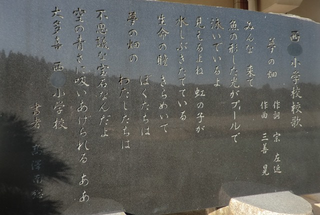 西 小学校校歌
芽の畑
作詞 宗 左近
作曲 三善 晃
みんな 来て
魚の形した光がプールで
泳いでいるよ
見えるよね 虹の子が
水しぶきたてている
生命の瞳 きらめいて
ぼくたちは
芽の畑の わたしたちは
不思議な宝石なんだよ
空の青さを吸いあげられる ああ
大多喜 西 小学校
書